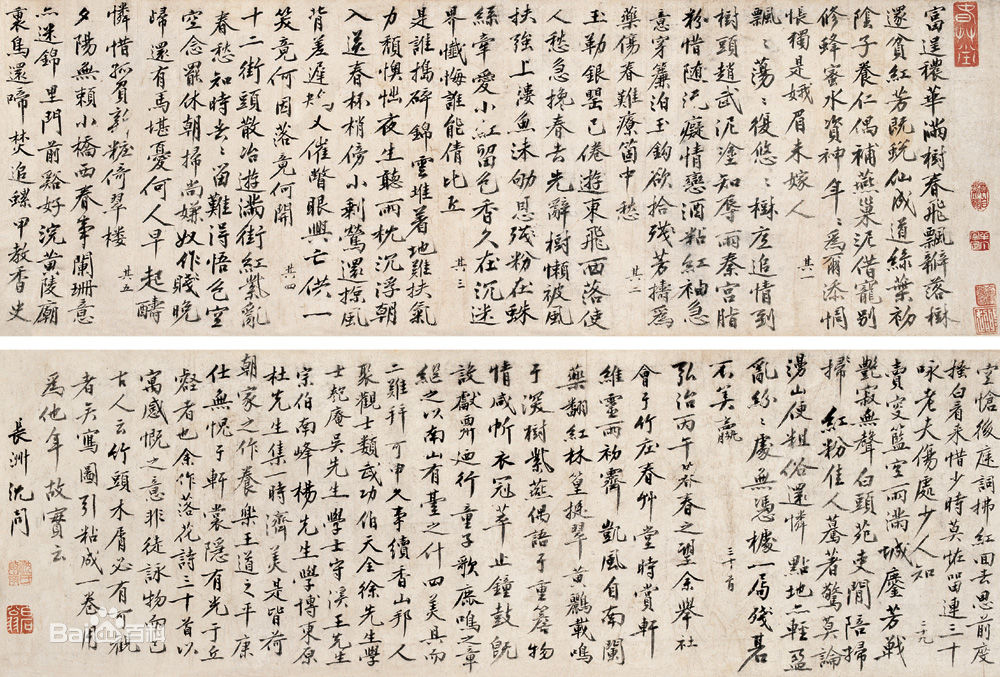 富逹穠華滿樹春飛飄瓣落樹
還貧紅芳既蛻仙成道綠葉初
陰子養仁偶補燕巢泥借寵別
修蜂蜜水資神年〻爲爾添惆
悵獨是娥眉未嫁人 其一
飄〻蕩〻復悠〻樹底追情到
樹頭趙武泥塗知辱雨秦宮脂
粉惜隨流癡情戀酒粘紅袖急
意穿簾泊玉鈎欲拾殘芳擣爲
藥傷春難療箇中愁 其二
玉勒銀罌已倦遊東飛西落使
人愁急挽春去先辭樹懶被風
扶強上樓魚沫恩殘粉在蛛
絲牽愛小紅留色香久在沉迷
界懺悔誰能倩比丘 其三
是誰搗碎錦雲堆着地難扶氣
力頹懊惱夜生聽雨枕沉浮朝
入送春杯梢傍小剩鶯還掠風
背差遲又催瞥眼興亡供一
笑竟何因落竟何開 其四
十二街頭散冶遊滿街紅紫亂
春愁知時去〻留難得悟色空
空念罷休朝掃尚嫌奴作賤晚
歸還有馬堪憂何人早起酬
憐惜孤負新粧倚翠樓 其五
夕陽無賴小橋西春事闌珊意
亦迷錦里門前谿好浣黃陵廟
裏鳥還啼焚追螺甲教香史
空愴後庭詞拂紅回去思前度
白看來惜少時莫恠留連三十
咏老夫傷處少人知
賣叟籃空雨滿城塵芳戰
艷寂無聲白頭苑吏閒陪掃
掃紅粉佳人驀若驚莫論
漫山便粗俗還憐點地亦輕盈
亂紛〻處無憑據一局殘碁
不美贏 三十首
弘治丙午暮春之望余舉社
會于竹庄春艸堂時賞軒
維靈雨初霽凱風自南闌
藥翻紅林篁挺翠黃鸝載鳴
于深樹紫燕偶語于重簷物
情咸忻衣冠萃止鐘鼓旣
設獻酬迺行童子歌鹿鳴之章
繼之以南山有臺之什四美具而
二難并可申久事續香山邦人
聚觀士類武功伯天全徐先生學
士匏庵吳先生學士守溪王先生
宗伯南峰楊先生學博東原
杜先生集時濟美是皆荷
朝家之作養樂王道之平康
仕無愧于軒裳隱有光于丘
壑者也余作落花詩三十首以
寓感慨之意非徒詠物而已
古人云竹頭木屑必有可觀
者矣寫圖引粘成一卷用
爲他年故實云
長洲沈周
Bai百科